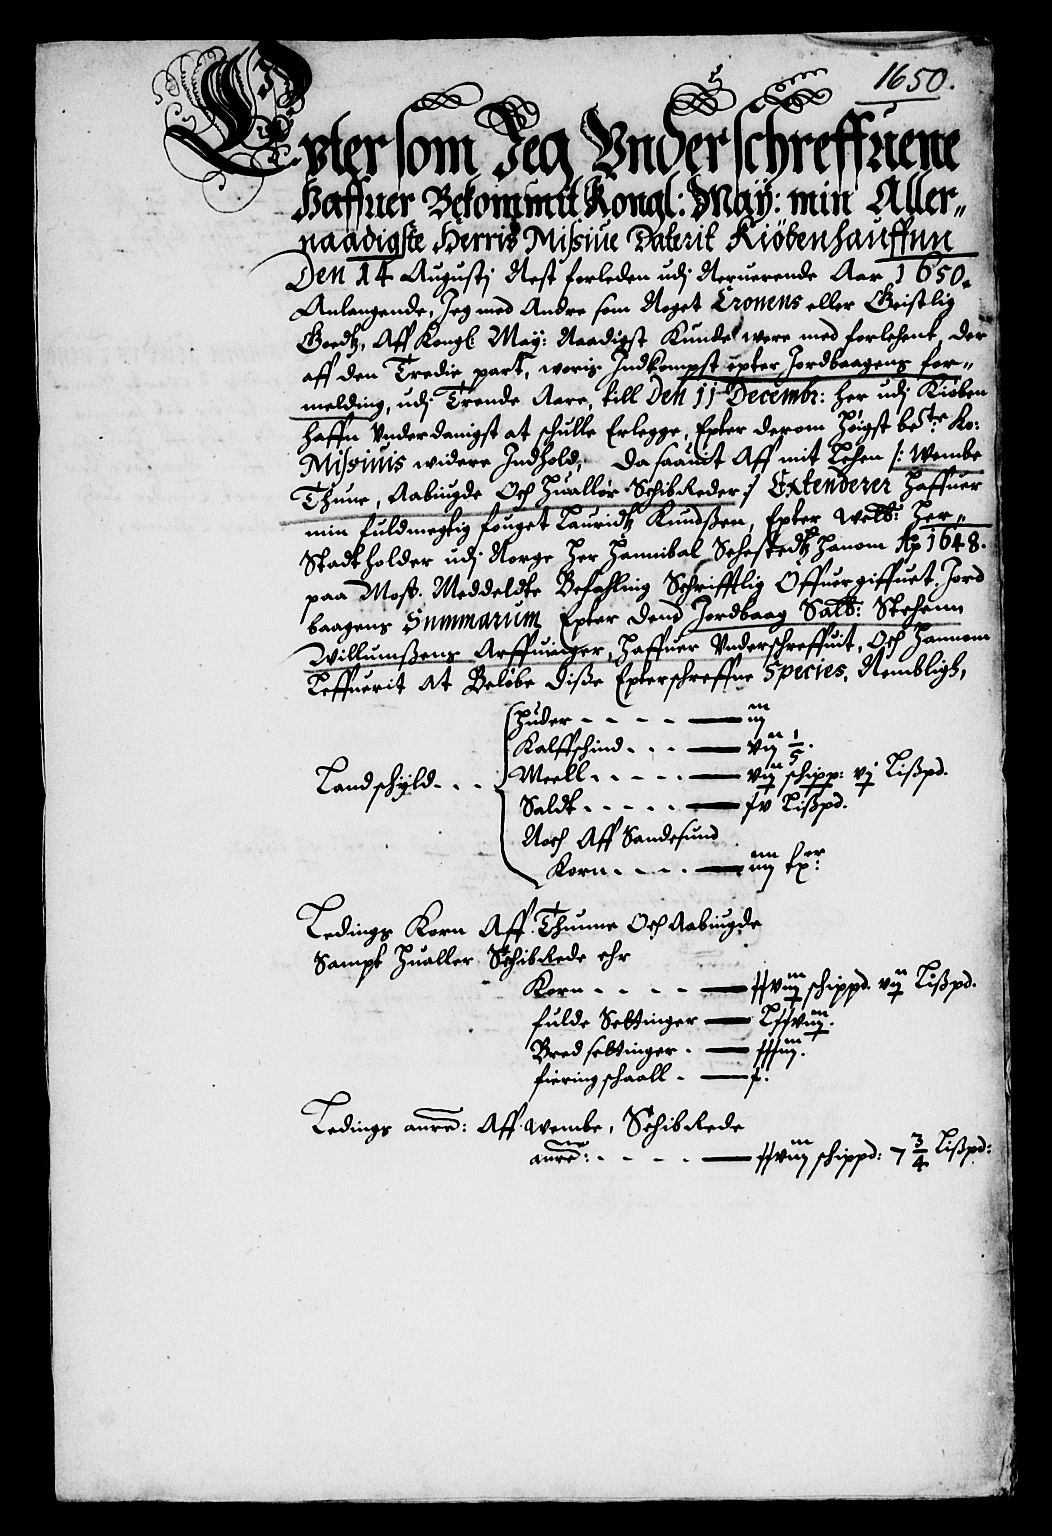 1650.
Epter som Jeg Underschreffuene
Haffuer Bekommit Kongl: May: min Aller„
naadigste Herris Missiue Daterit Kiöbenhauffnn
Den 14 Augustj Nest forleden udj Neruerende Aar 1650.
Anlangende, Jeg med Andre som Noget Cronens eller Geistlig
Goedtz, Aff Kongl: May: Naadigst Kunde were med forlehent, der
aff den Tredie part, woris Indkompst epter Jordbaagens for„
melding, udj Trende Aare, till Den 11 Decembr: her udj Kiöben
haffn Vnderdanigst at schulle Erlegge, Epter derom Höigst bete Ko:
Missiuis widere Indhold, Da saauit Aff mit Lehen /: Wembe
Thune, Aabiugde Och Hualløe Schibrleder :/ Extenderer Haffuer
min fuldmegtig fouget Lauridtz Knudßen, Epter Welb: Her„
Stadtholder udj Norge Her Hannibal Sehestedtz Hanom Ao 1648.
paa Moß. Meddeldte Befahling Schrifftlig Offuergiffuet. Jord
baagens Summarum Epter Dend Jordbaag Sal: Stehenn
Willumßens Arffuinger, Haffuer Vnderschreffuit, Och Hannom
Leffuerit At Beløbe Diße Epterschreffne Species, Nembligh,
Landschyld. . .
Huder - - - - — iij
Kalffschind. . . — vij 1/5.
Meell . . . . . — viij schipp: vj Lißpd.
Saldt - - - - - — xv Lißpd.
Noch Aff Sandesund
Korn. . . . — iiij
Ledings Korn Aff Thunne Och Aabiugde
Sampt Hualler Schibrede ehr
Korn - - - - — xxviij schippd. vij Lißpd.
fulde Settinger — Lxxviij.
Bred settinger . — xxxiij.
fieringschaall - — x.
Ledings : Aff Wembe, Schibrede
. . . . — xxviij schippd: 7 3/4 Lißpd: